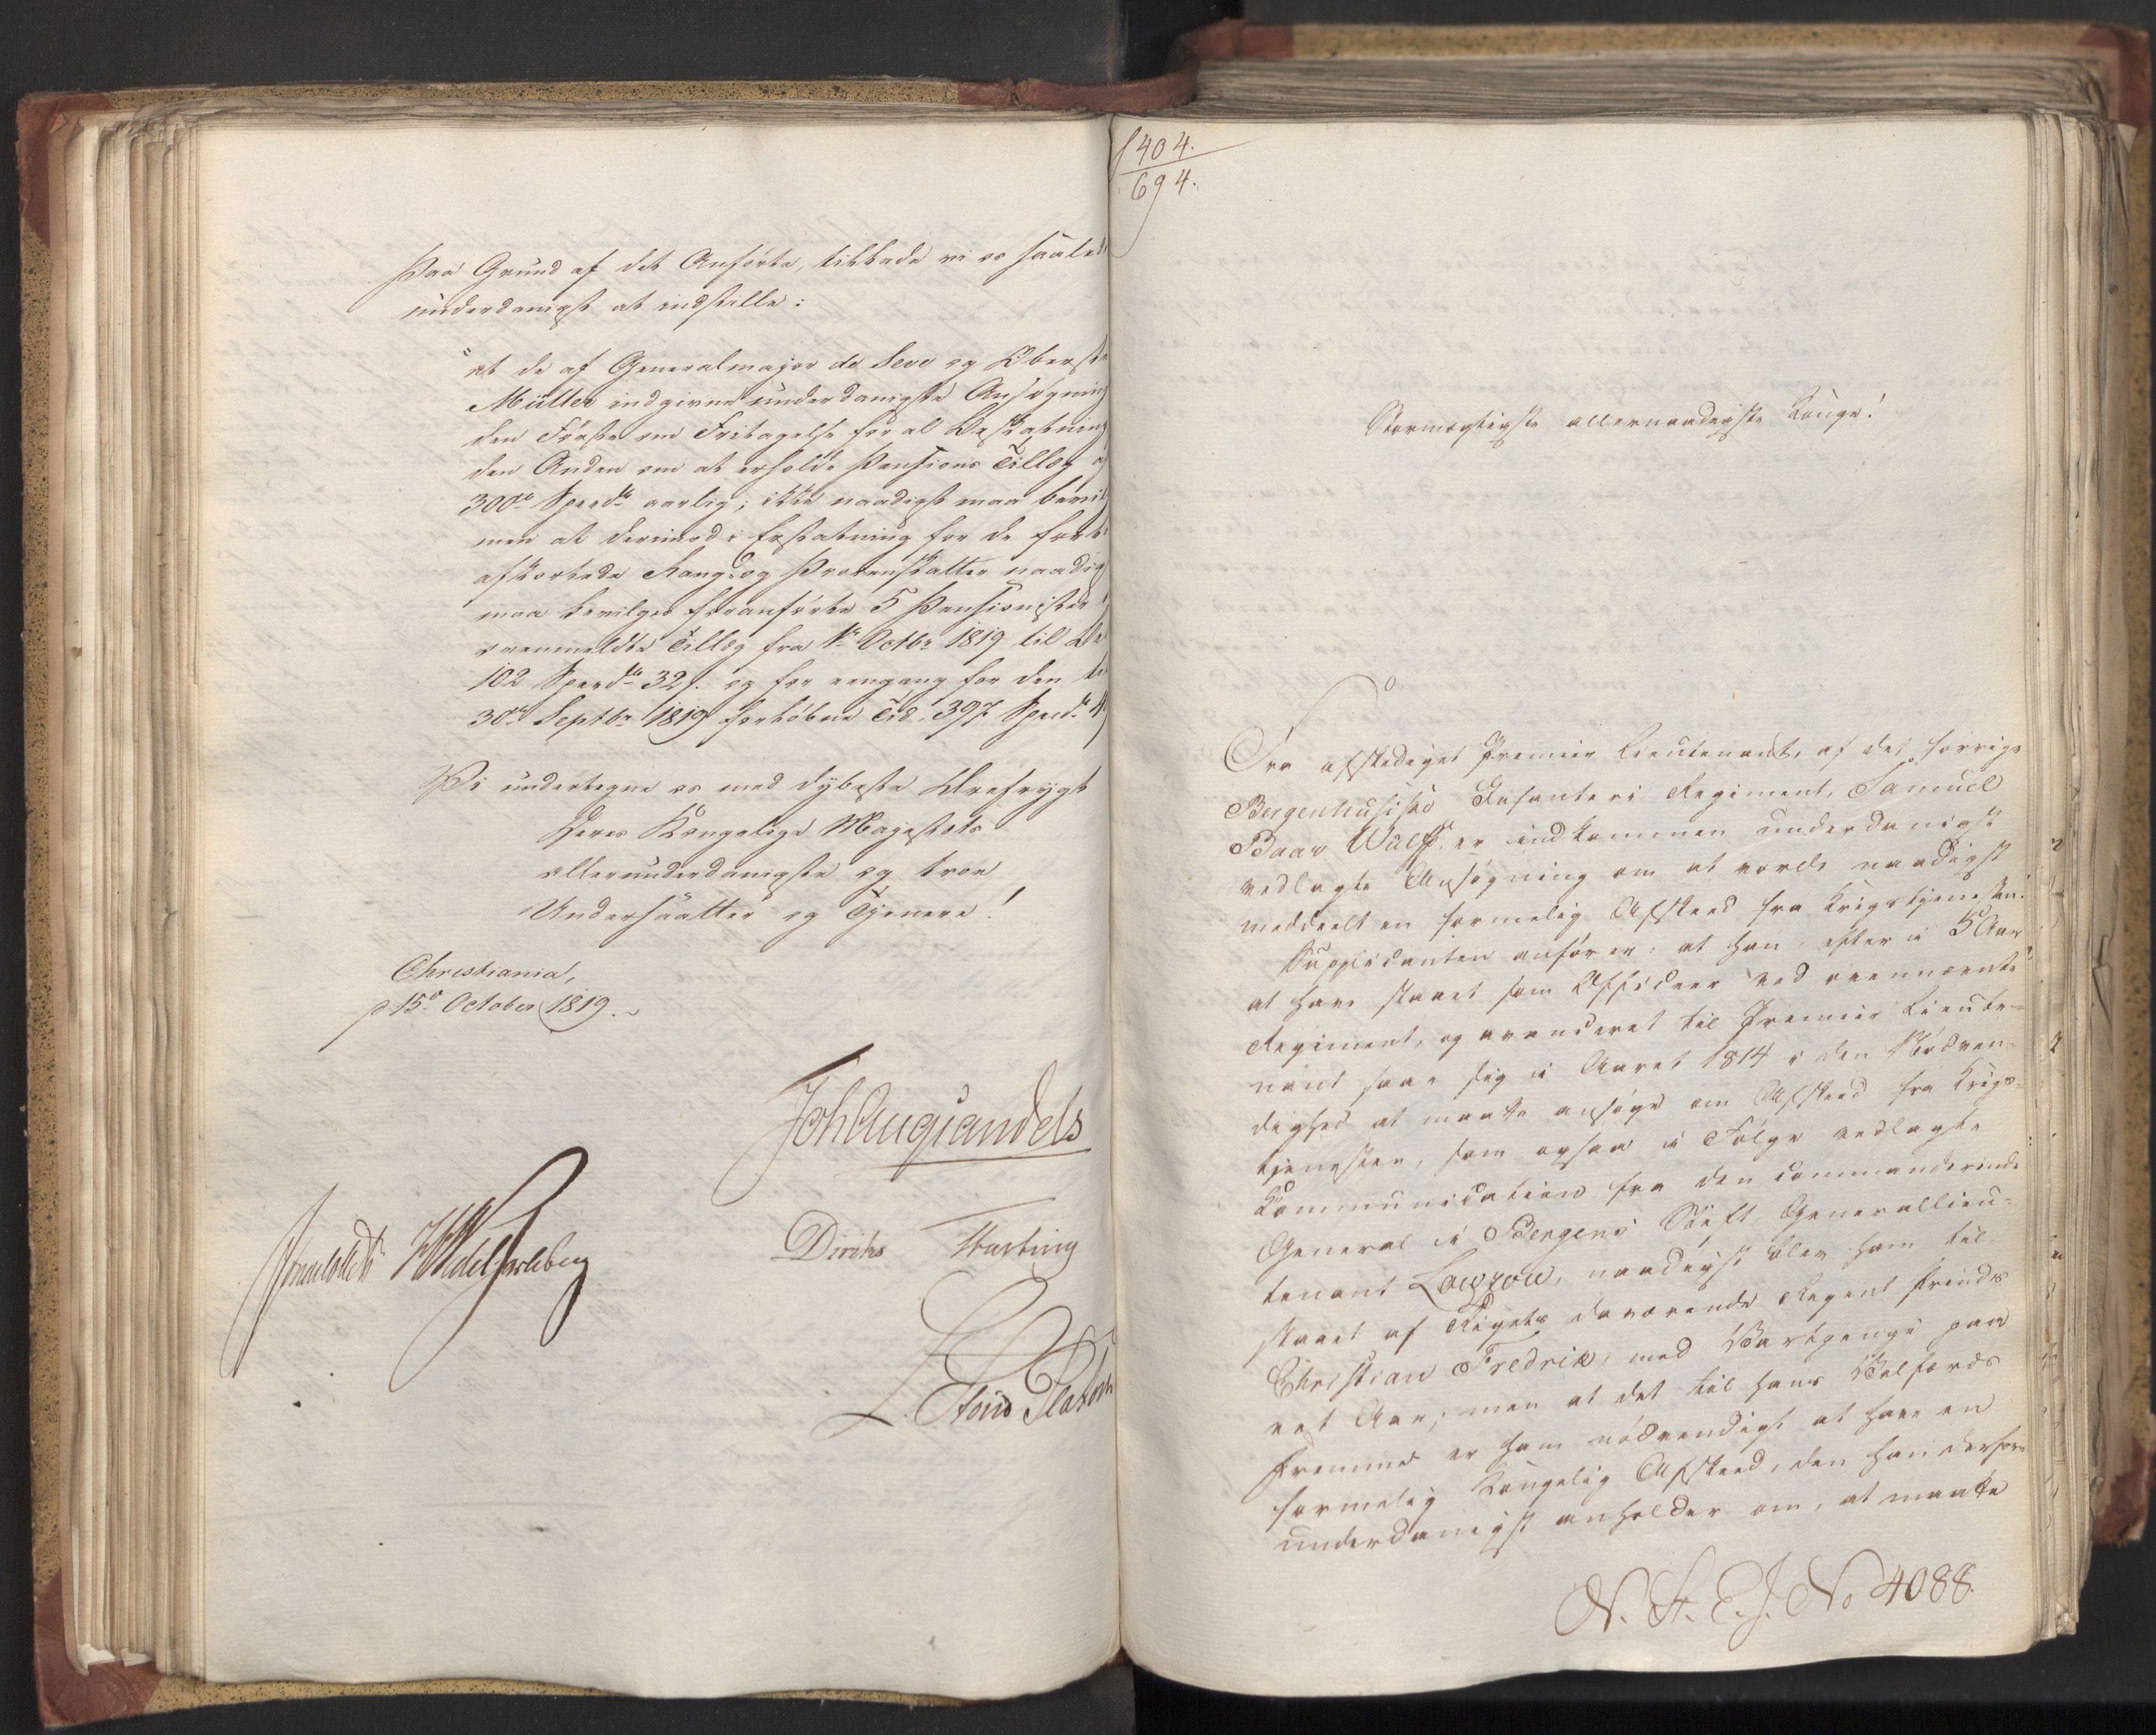 Paa Grund af det Anførte, tillade vi os saaled
underdanigst at indstille:
"at de af Generalmajor de Seve og Oberst
Müller indgivne underdanigste Ansøgning
den Første om Fritagelse for al Beskatning
den Anden om at erholde Pensions Tillæg af
300de Specd. aarlig; ikke naadigst maa bevil
men at derimod i Erstatning for de forhen
afkortede Rang- og Procentskatter naadig
maa bevilges foranførte 5 Pensionister
ovenmeldte Tillæg fra 1te Octbr 1819 til
102 Specd. 32 s. og for eengang for den til
30te Septbr 1819 forløbne Tid, 397 Specd. 4
Vi undertegne os med dybeste Ærefrygt
Deres Kongelige Majestæts
allerunderdanigste og troe
Undersaatter og Tjenere!
Christiania,
p 15de October 1819.
Joh Aug Sandels
Diriks Harbing
L. Stoud Platou
1404.
694.
Stormægtigste allernaadigste Konge!
Fra afskediget Premier Lieutenant, af det forrige
Bergenhusiske Infanteri Regiment, Samuel
Baar Wulff er indkommen underdanigst
vedlagte Ansøgning om at vorde naadigst
meddeelt en formelig Afskeed fra Krigstjenesten.
Supplicanten anfører: at han, efter i 5 Aar
at have staaet som Officeer ved ovennævnte
Regiment, og avanceret til Premier Lieute-
nant saae sig i Aaret 1814 i den Nødven-
dighed at maatte ansøge om Afskeed fra Krigs-
tjenesten, som ogsaa i Følge vedlagte
Communication fra den commanderende
General i Bergens Stift, Generallieu-
tenant Lowzow, naadigst blev ham til-
staaet af Rigets daværende Regent Prinds
Christian Fredrik, med Vartpenge paa
eet Aar; men at det til hans Velfærds
Fremme er ham nødvendigt at have en
formelig Kongelig Afskeed, den han derfor
underdanigst anholder om, at maatte
N. St. E. J. No 4088.